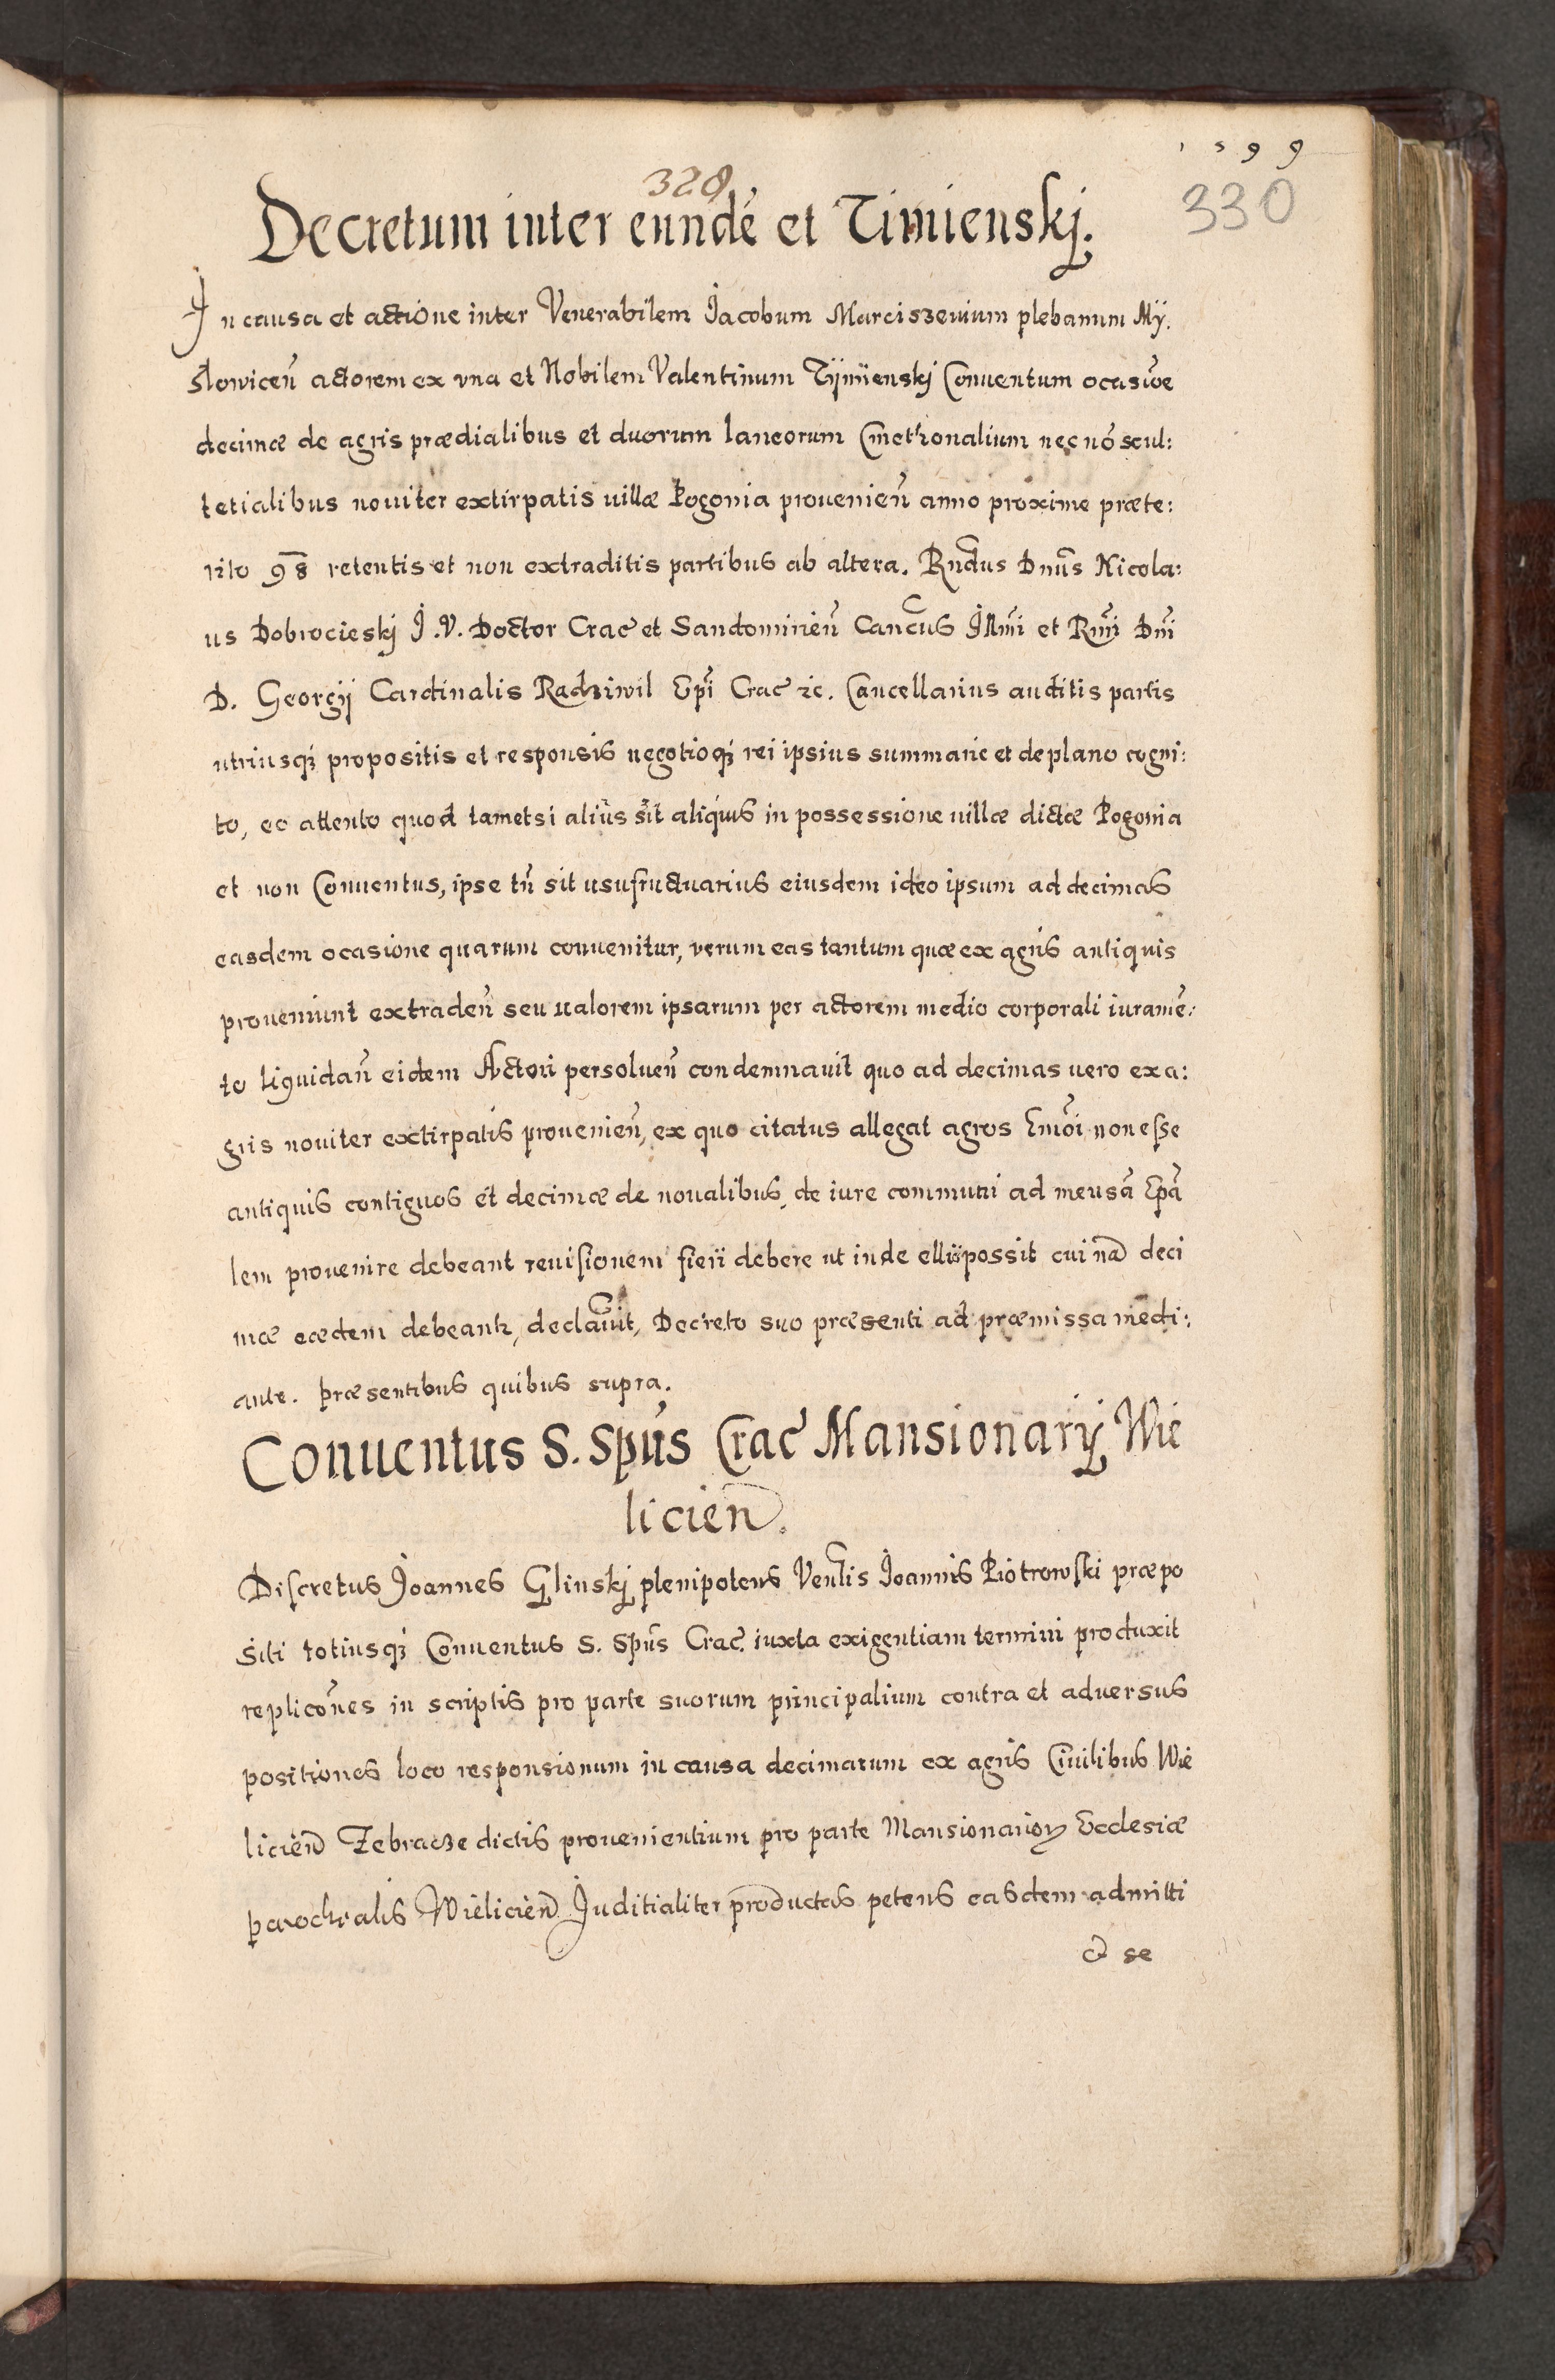 1599
328
330
Decretum inter eundē et Timienskj.
In causa et actione inter Venerabilem Jacobum Marciszewium plebanum My:
slowiceñ actorem ex vna et Nobilem Valentinum Tijmienskj Conuentum ocasiõe
decimæ de agris prædialibus et duorum laneorum Cmethonalium nec nõ scul:
tetialibus nouiter extirpatis uillæ Pogonia prouenieñ anno proxime præte:
rito 98 retentis et non extraditis partibus ab altera. Rndus Dnus Nicola:
us Dobrocieskj J. V. Doctor Crac et Sandomirieñ Cancus Illmi et Rmi Dni
D. Georgij Cardinalis Radziwil Epi Crac etc. Cancellarius auditis partis
utriusq; propositis et responsis negotioq; rei ipsius summarie et de plano cogni:
to, eo attento quod tametsi alius sit aliquis in possessione uillæ dictæ Pogonia
et non Conuentus, ipse tñ sit usufructuarius eiusdem ideo ipsum ad decimas
easdem ocasione quarum conuenitur, verum eas tantum quæ ex agris antiquis
proueniunt extradeñ seu ualorem ipsarum per actorem medio corporali iuramē:
to liquidañ eidem Actori persolueñ condemnauit quo ad decimas uero ex a:
gris nouiter extirpatis prouenieñ, ex quo citatus allegat agros Emõi non esse
antiquis contiguos et decimæ de noualibus de iure communi ad mensã Epã
lem prouenire debeant reuisionem fieri debere ut inde possit cui nã deci
mæ eædem debeantr, declauit, Decreto suo præsenti ad præmissa medi:
ante. Præsentibus quibus supra.
Conuentus S. Spũs Crac Mansionarij Wie
licieñ.
Discretus Joannes Glinskj plenipotens Venlis Joannis Piotrowski præpo
siti totiusq; Conuentus S. Spũs Crac. iuxta exigentiam termini produxit
replicões in scriptis pro parte suorum principalium contra et aduersus
positiones loco responsionum in causa decimarum ex agris Ciuilibus Wie
licieñ Zebracze dictis prouenientium pro parte Mansionariorꝝ Ecclesiæ
parochialis Wielicieñ Juditialiter productas petens easdem admitti
& se